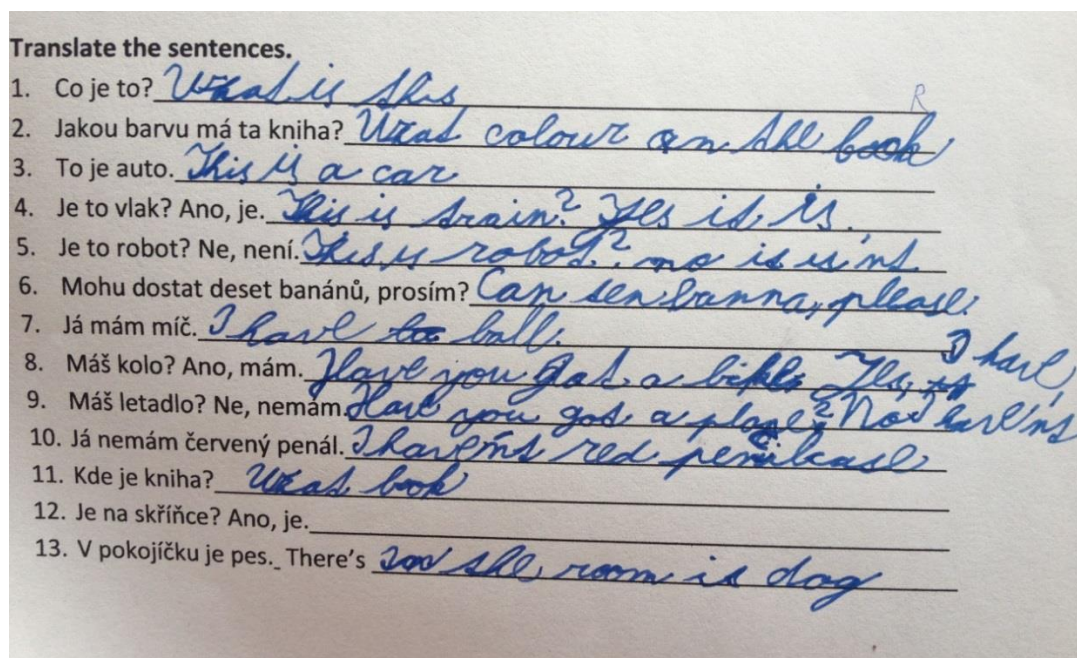 Translate the sentences.
1. Co je to? What is this
R
2. Jakou barvu má ta kniha? What colour on the book
3. To je auto. This is a car
4. Je to vlak? Ano, je. This is train? Yes it is.
5. Je to robot? Ne, není. This is robot? no is is'nt
6. Mohu dostat deset banánů, prosím? Can ten banna, please.
7. Já mám míč. I have ball.
8. Máš kolo? Ano, mám. Have you got a bike Yes, I have
9. Máš letadlo? Ne, nemám. Have you got a plane? No I have'nt
10. Já nemám červený penál. I have'nt red pencilcase
11. Kde je kniha? What book
12. Je na skříňce? Ano, je.
13. V pokojíčku je pes. There's the room is dog